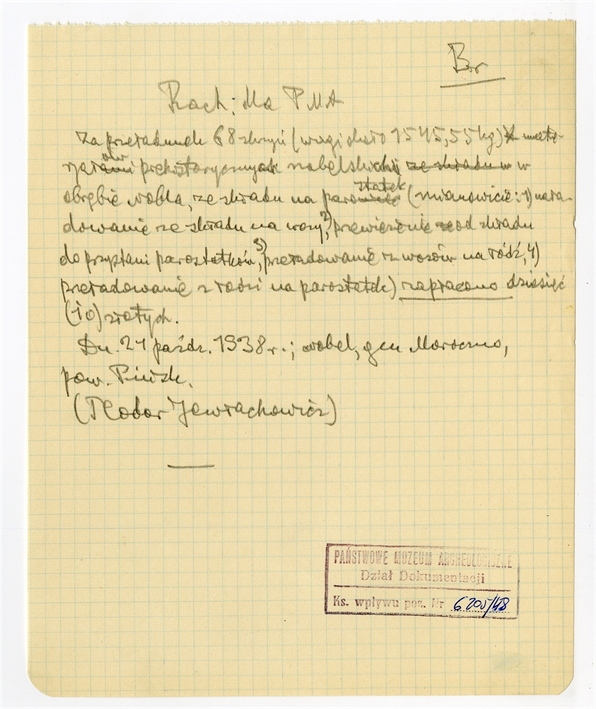 Br
Rach: dla PMA
Za przeładunek 68 skrzyń (wagi około 1545,55 kg) z mate-
rjałami prehistorycznych nobelskich ze składu w w
obrębie Nobla, ze składu na parostatek (mianowicie: 1) nała-
dowanie ze składu na wozy, 2) przewiezienie od składu
do przystani parostatków, 3) przeładowanie z wozów na łódź, 4)
przeładowanie z łodzi na parostatek) zapłacono dziesięć
(10) złotych.
Dn. 21 paźdz. 1938 r.; Nobel, gm Moroczno,
pow. Pińsk.
(Teodor Jewłachowicz)
PAŃSTWOWE MUZEUM ARCHEOLOGICZNE
Dział Dokumentacji
Ks. wpływu poz. Nr 6200/48